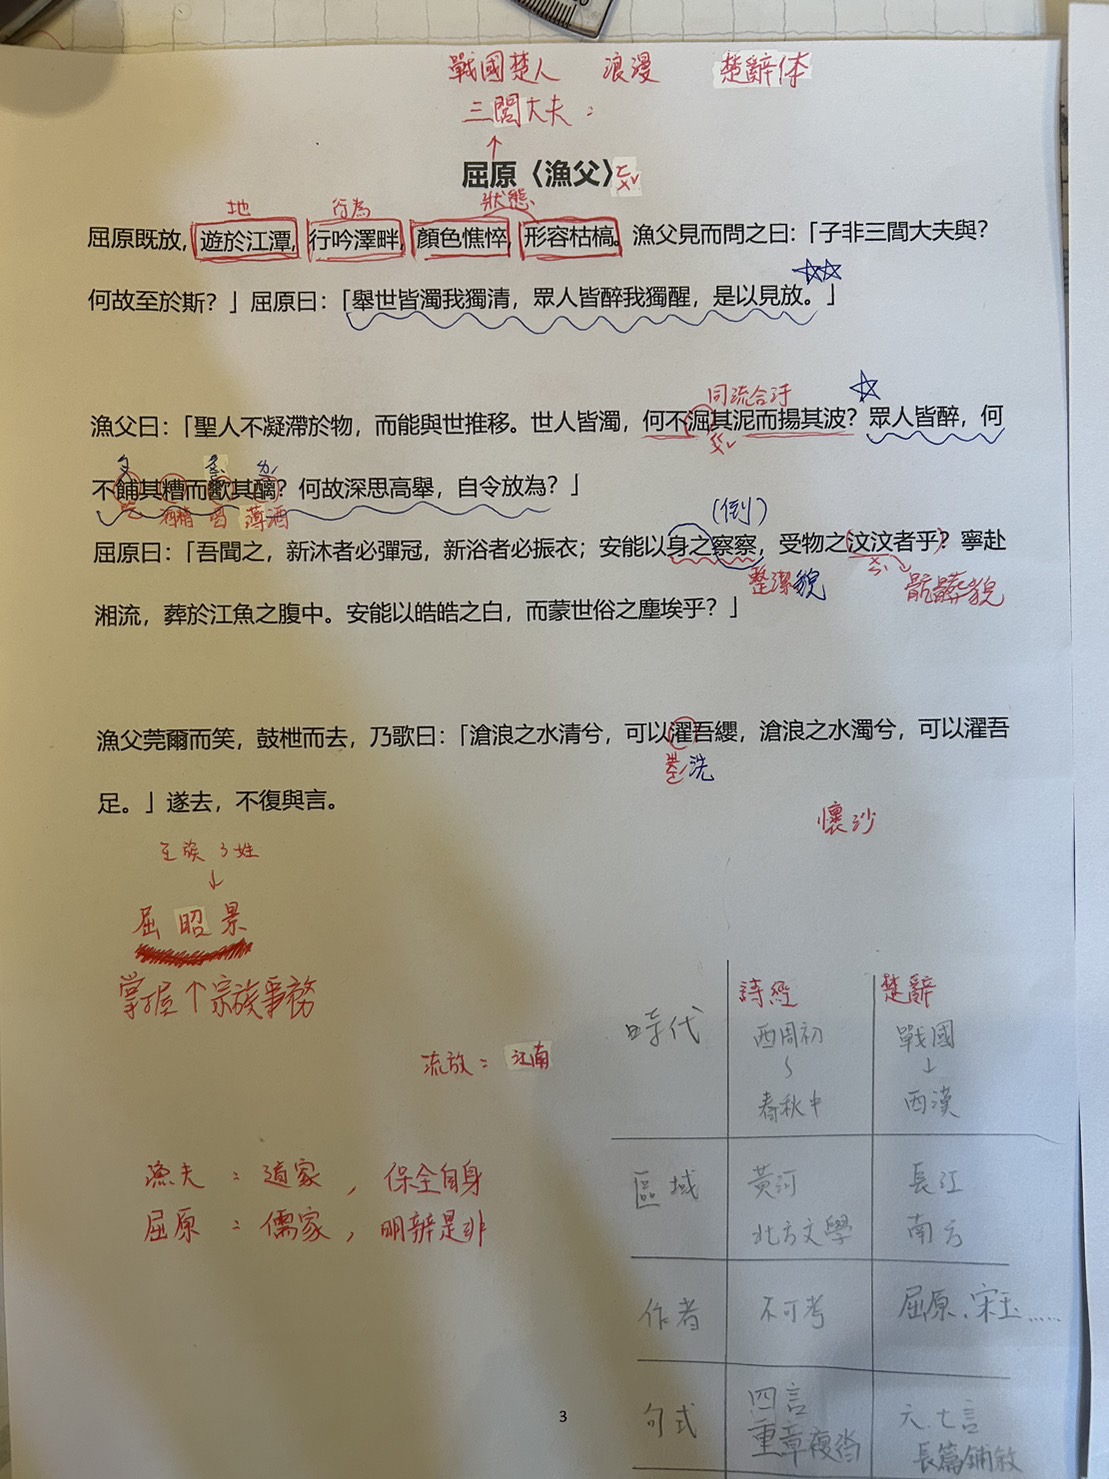 戰國楚人 浪漫 楚辭体
三閭大夫：
屈原〈漁父〉
地 行為 狀態
屈原既放，遊於江潭，行吟澤畔，顏色憔悴，形容枯槁。漁父見而問之曰：「子非三閭大夫與？
何故至於斯？」屈原曰：「舉世皆濁我獨清，眾人皆醉我獨醒，是以見放。」
同流合汙
漁父曰：「聖人不凝滯於物，而能與世推移。世人皆濁，何不淈其泥而揚其波？眾人皆醉，何
不餔其糟而歠其醨？何故深思高舉，自令放為？」
吃 酒糟 喝 薄酒
(倒)
屈原曰：「吾聞之，新沐者必彈冠，新浴者必振衣；安能以身之察察，受物之汶汶者乎？寧赴
整潔貌 骯髒貌
湘流，葬於江魚之腹中。安能以皓皓之白，而蒙世俗之塵埃乎？」
漁父莞爾而笑，鼓枻而去，乃歌曰：「滄浪之水清兮，可以濯吾纓，滄浪之水濁兮，可以濯吾
洗
足。」遂去，不復與言。
懷沙
王族 3 姓
↓
屈 昭 景
掌握↑宗族事務
流放：江南
漁夫：道家，保全自身
屈原：儒家，明辨是非
詩經 楚辭
時代 西周初 戰國
～ ↓
春秋中 西漢
區域 黃河 長江
北方文學 南方
作者 不可考 屈原、宋玉......
句式 四言 六、七言
重章複沓 長篇鋪敘
3